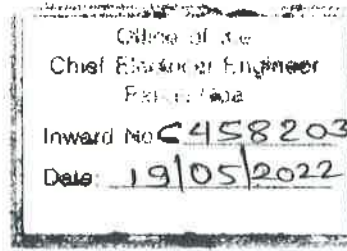 Office of the
Chief Electrical Engineer
Goa
Inward No C 458203
Date: 19/05/2022